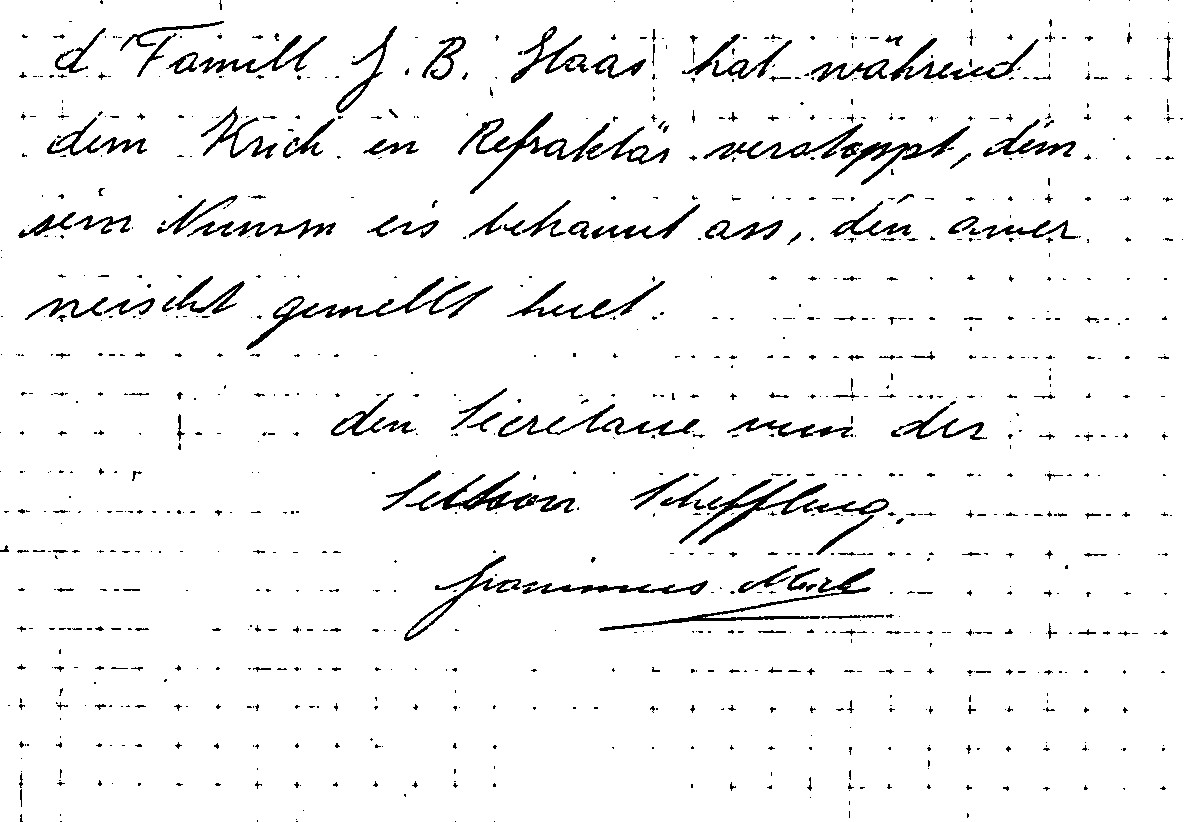 d'Famill J. B. Haas hat während
dem Krich en Refraktär verstoppt, dem
sein Numm eis bekannt ass, den awer
neischt gemellt huet.
den Secrétaire vun der
Sektion Schëffleng.